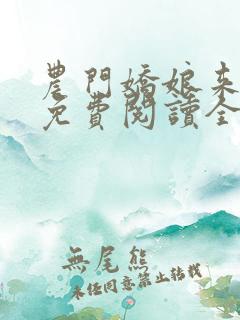 農門嬌娘来
免費閱讀全
無尾熊
未經同意禁止轉載